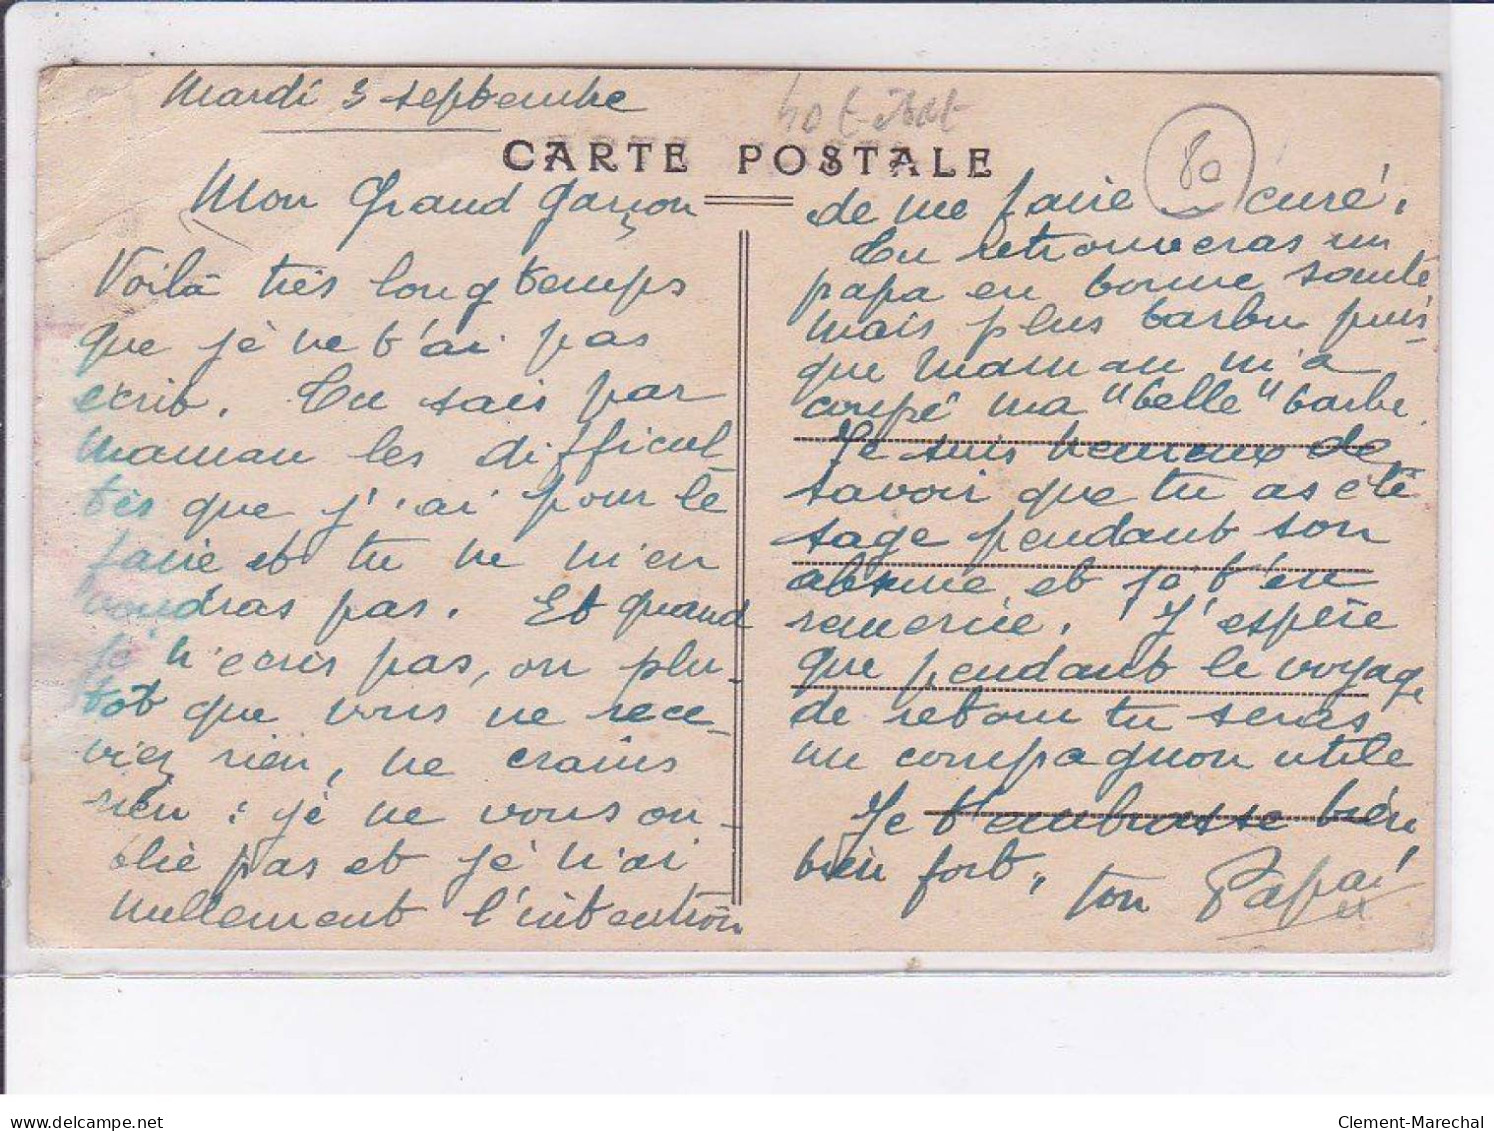 Mardi 3 septembre
CARTE POSTALE
80
Mon Grand Garçon
Voilà très longtemps
que je ne t'ai pas
écrit. Tu sais par
maman les difficul
tés que j'ai pour le
faire et tu ne m'en
voudras pas. Et quand
je n'écris pas, ou plu-
tot que vous ne rece-
viez rien, ne crains
rien : je ne vous ou-
blie pas et je n'ai
nullement l'intention
de me faire curé.
Tu retrouveras un
papa en bonne santé
mais plus barbu puis-
que maman m'a
coupé ma "belle" barbe.
Je suis heureux de
savoir que tu as été
sage pendant son
absence et je t'en
remercie. J'espère
que pendant le voyage
de retour tu seras
un compagnon utile
Je t'embrasse bien
bien fort, ton Papa
www.delcampe.net
Clement-Marechal